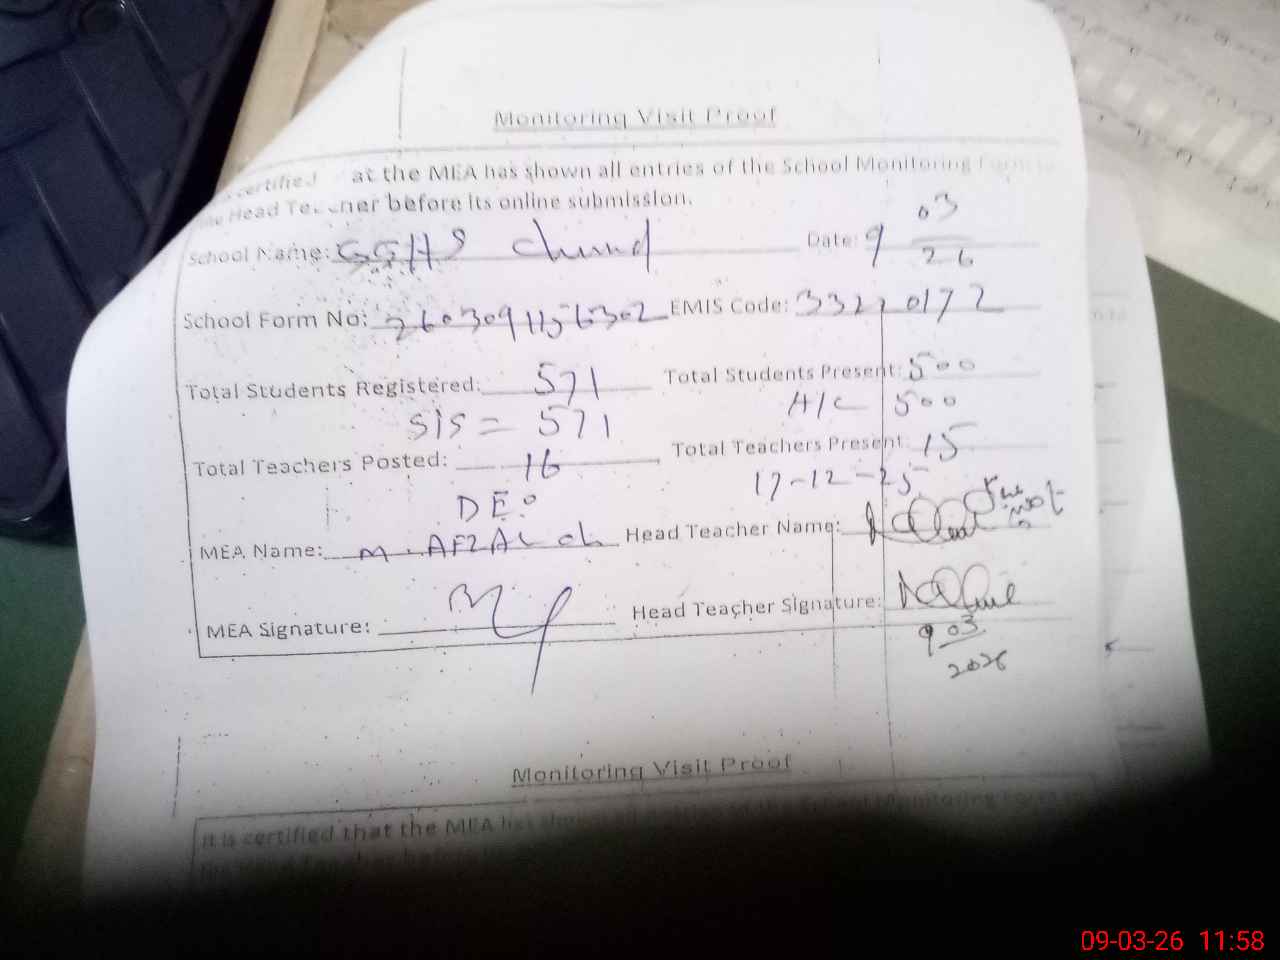 Monitoring Visit Proof
certified at the MEA has shown all entries of the School Monitoring Form
Head Teacher before its online submission.
School Name: GGHS Chund Date: 9 03 26
School Form No: 2603091156302 EMIS Code: 33220172
Total Students Registered: 571 Total Students Present: 500
SIS = 571 H/C 500
Total Teachers Posted: 16 Total Teachers Present: 15
DEO 17-12-25
MEA Name: M. AFZAL ch Head Teacher Name:
MEA Signature: Head Teacher Signature:
9 03
2026
Monitoring Visit Proof
It is certified that the MEA has shown all School Monitoring Form
09-03-26 11:58